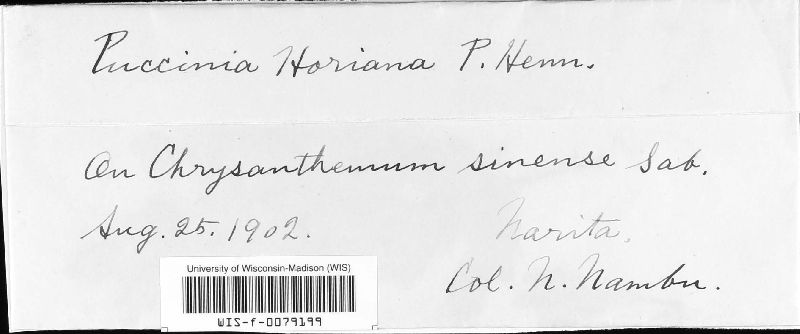 Puccinia Horiana P. Henn.
On Chrysanthemum sinense Sab.
Aug. 25. 1902.
Narita.
Col. N. Nambu.
University of Wisconsin-Madison (WIS)
WIS-f-0079199